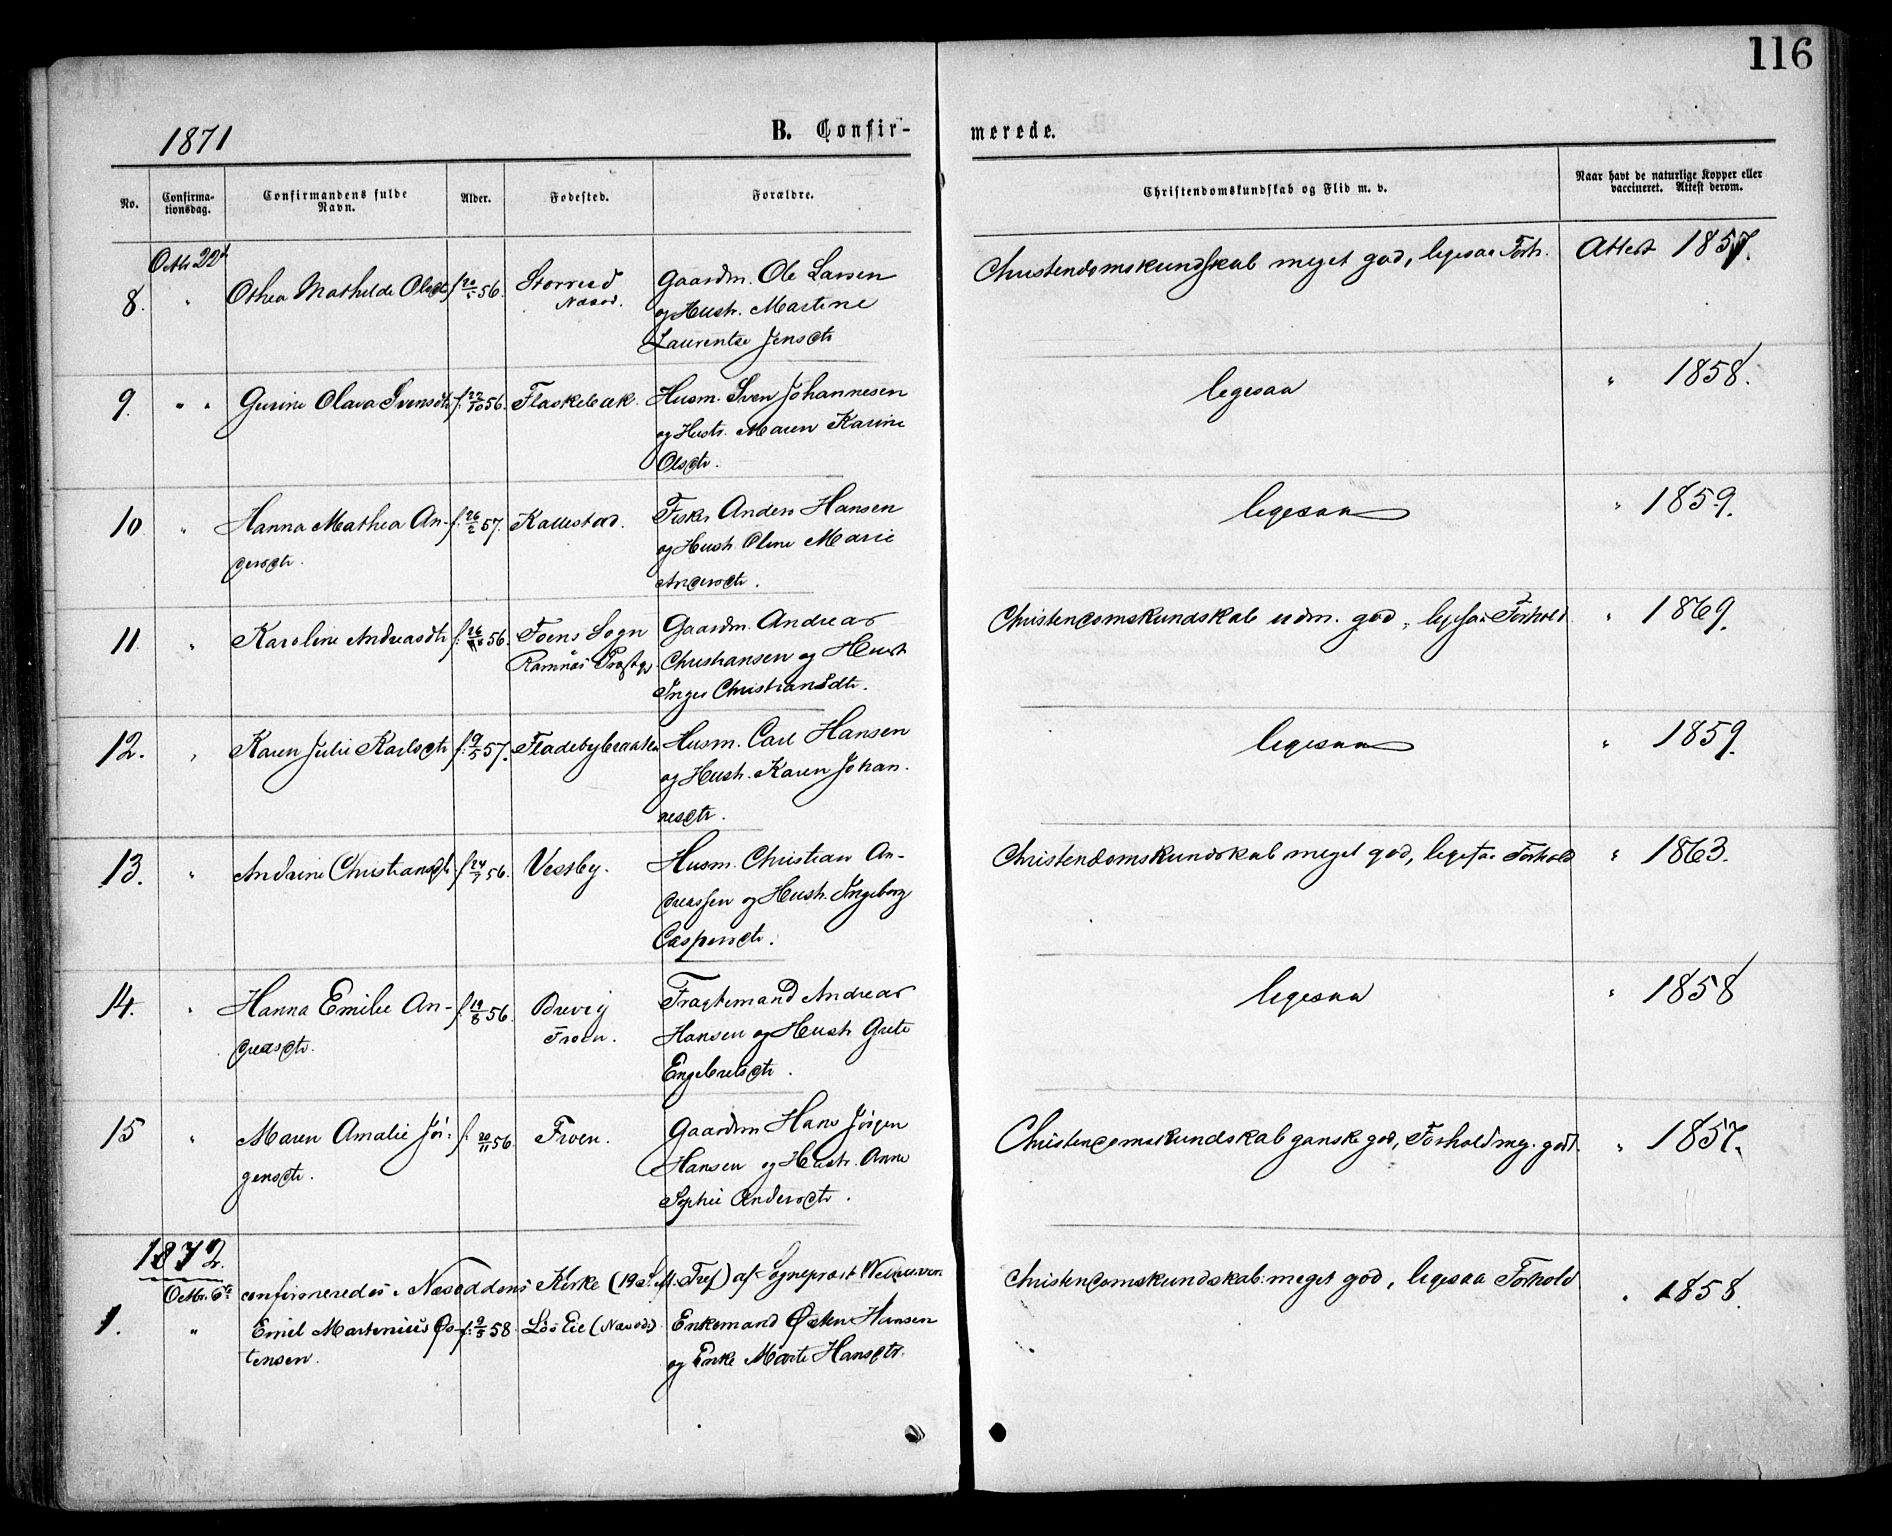 116
1871
B. Confir-
merede.
No.
Confirma-
tionsdag.
Confirmandens fulde
Navn.
Alder.
Fødested.
Forældre.
Christendomskundskab og Flid m. v.
Naar havt de naturlige Kopper eller
vaccineret. Attest derom.
Octbr 22d
8. " Othea Mathilde Olsdtr f. 20/5 56. Storrud Gaardm. Ole Larsen Christendomskundskab meget god, ligesaa Forh. Attest 1857.
Nesod. og Hustr. Martine
Laurentse Jensdtr
9. " " Gurine Olava Svensdtr f. 22/10 56. Flaskebæk. Husm. Sven Johannesen ligesaa " 1858.
og Hustr. Maren Karine
Olsdtr.
10 " Hanna Mathea An- f. 26/2 57. Kallestad. Fisker Anders Hansen ligesaa " 1859.
dersdtr. og Hustr. Oline Marie
Andersdtr.
11 " Karoline Andreasdtr f. 26/ 56. Foens Sogn Gaardm. Andreas Christendomskundskab udm. god, ligesaa Forhold " 1869.
Ramnæs Præstgj. Christiansen og Hustr
Inger Christiansdtr.
12. " Karen Julie Karlsdtr f. 9/5 57. Fladebybraaten Husm. Carl Hansen ligesaa " 1859.
og Hustr. Karen Johan-
nesdtr.
13. " Andrine Christiansdtr f. 24/7 56. Vestby. Husm. Christian An- Christendomskundskab meget god, ligesaa Forhold " 1863.
dreassen og Hustr. Ingeborg
Caspersdtr.
14. " Hanna Emilie An- f. 19/8 56. Brevig Fragtemand Andreas ligesaa " 1858
dreasdtr. Froen. Hansen og Hustr. Grete
Engebretsdtr.
15 " Maren Amalie Jør- f. 20/11 56. Froen. Gaardm Hans Jørgen Christendomskundskab ganske god, Forhold meg. godt. " 1857.
gensdtr. Hansen og Hustr. Anne
Sophie Andersdtr.
1872.
Octbr. 6te confirmeredes i Næsoddens Kirke (19de S. e. Tref) af Sogneprest
1. " Emil Martinius Øs- f. 9/5 58. Løs Eie (Nesod.) Enkemand Østen Hansen Christendomskundskab meget god, ligesaa Forhold " 1858.
tensen. og Enke Marte Hansdtr.